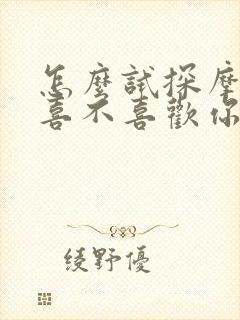 怎麼試探摩
喜不喜歡你
綾野優